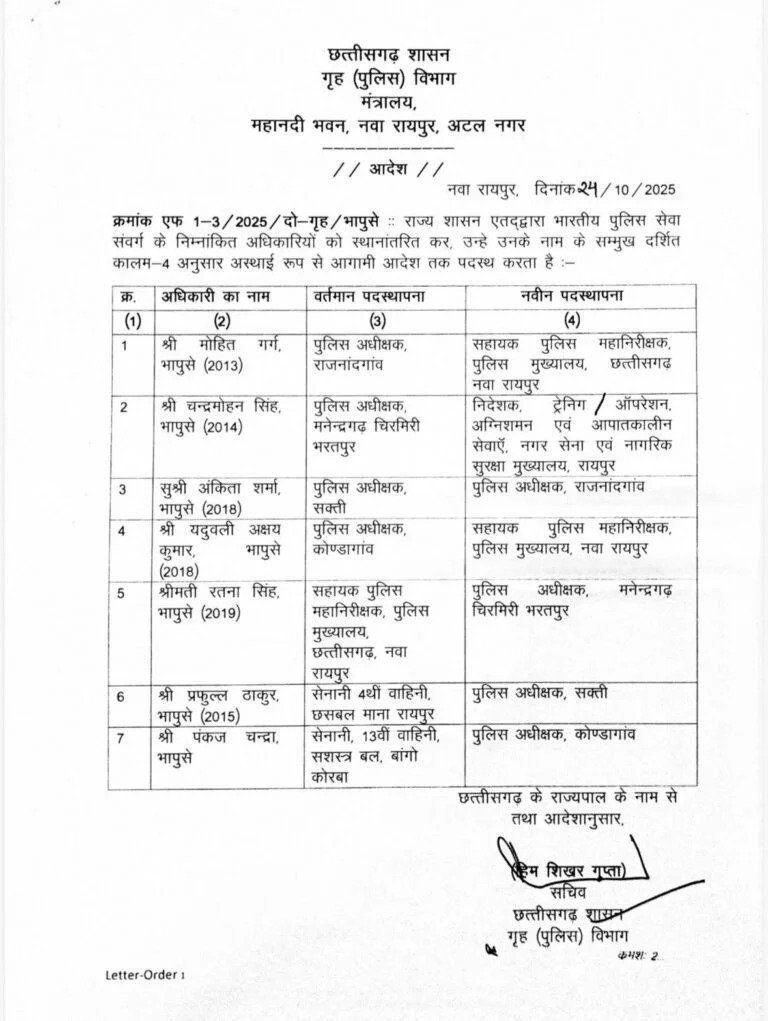 छत्तीसगढ़ शासन
गृह (पुलिस) विभाग
मंत्रालय,
महानदी भवन, नवा रायपुर, अटल नगर
// आदेश //
नवा रायपुर, दिनांक 24/10/2025
क्रमांक एफ 1-3/2025/दो-गृह/भापुसे :: राज्य शासन एतद्द्वारा भारतीय पुलिस सेवा
संवर्ग के निम्नांकित अधिकारियों को स्थानांतरित कर, उन्हे उनके नाम के सम्मुख दर्शित
कालम-4 अनुसार अस्थाई रूप से आगामी आदेश तक पदस्थ करता है :-
क्र. अधिकारी का नाम वर्तमान पदस्थापना नवीन पदस्थापना
(1) (2) (3) (4)
1 श्री मोहित गर्ग, पुलिस अधीक्षक, सहायक पुलिस महानिरीक्षक,
भापुसे (2013) राजनांदगांव पुलिस मुख्यालय, छत्तीसगढ़
नवा रायपुर
2 श्री चन्द्रमोहन सिंह, पुलिस अधीक्षक, निदेशक, ट्रेनिग / ऑपरेशन,
भापुसे (2014) मनेन्द्रगढ़ चिरमिरी अग्निशमन एवं आपातकालीन
भरतपुर सेवाऍ, नगर सेना एवं नागरिक
सुरक्षा मुख्यालय, रायपुर
3 सुश्री अंकिता शर्मा, पुलिस अधीक्षक, पुलिस अधीक्षक, राजनांदगांव
भापुसे (2018) सक्ती
4 श्री यदुवली अक्षय पुलिस अधीक्षक, सहायक पुलिस महानिरीक्षक,
कुमार, भापुसे कोण्डागांव पुलिस मुख्यालय, नवा रायपुर
(2018)
5 श्रीमती रतना सिंह, सहायक पुलिस पुलिस अधीक्षक, मनेन्द्रगढ़
भापुसे (2019) महानिरीक्षक, पुलिस चिरमिरी भरतपुर
मुख्यालय,
छत्तीसगढ़, नवा
रायपुर
6 श्री प्रफुल्ल ठाकुर, सेनानी 4थीं वाहिनी, पुलिस अधीक्षक, सक्ती
भापुसे (2015) छसबल माना रायपुर
7 श्री पंकज चन्द्रा, सेनानी, 13वीं वाहिनी, पुलिस अधीक्षक, कोण्डागांव
भापुसे सशस्त्र बल, बांगो
कोरबा
छत्तीसगढ़ के राज्यपाल के नाम से
तथा आदेशानुसार,
(हिम शिखर गुप्ता)
सचिव
छत्तीसगढ़ शासन
गृह (पुलिस) विभाग
कमशः 2
Letter-Order 1